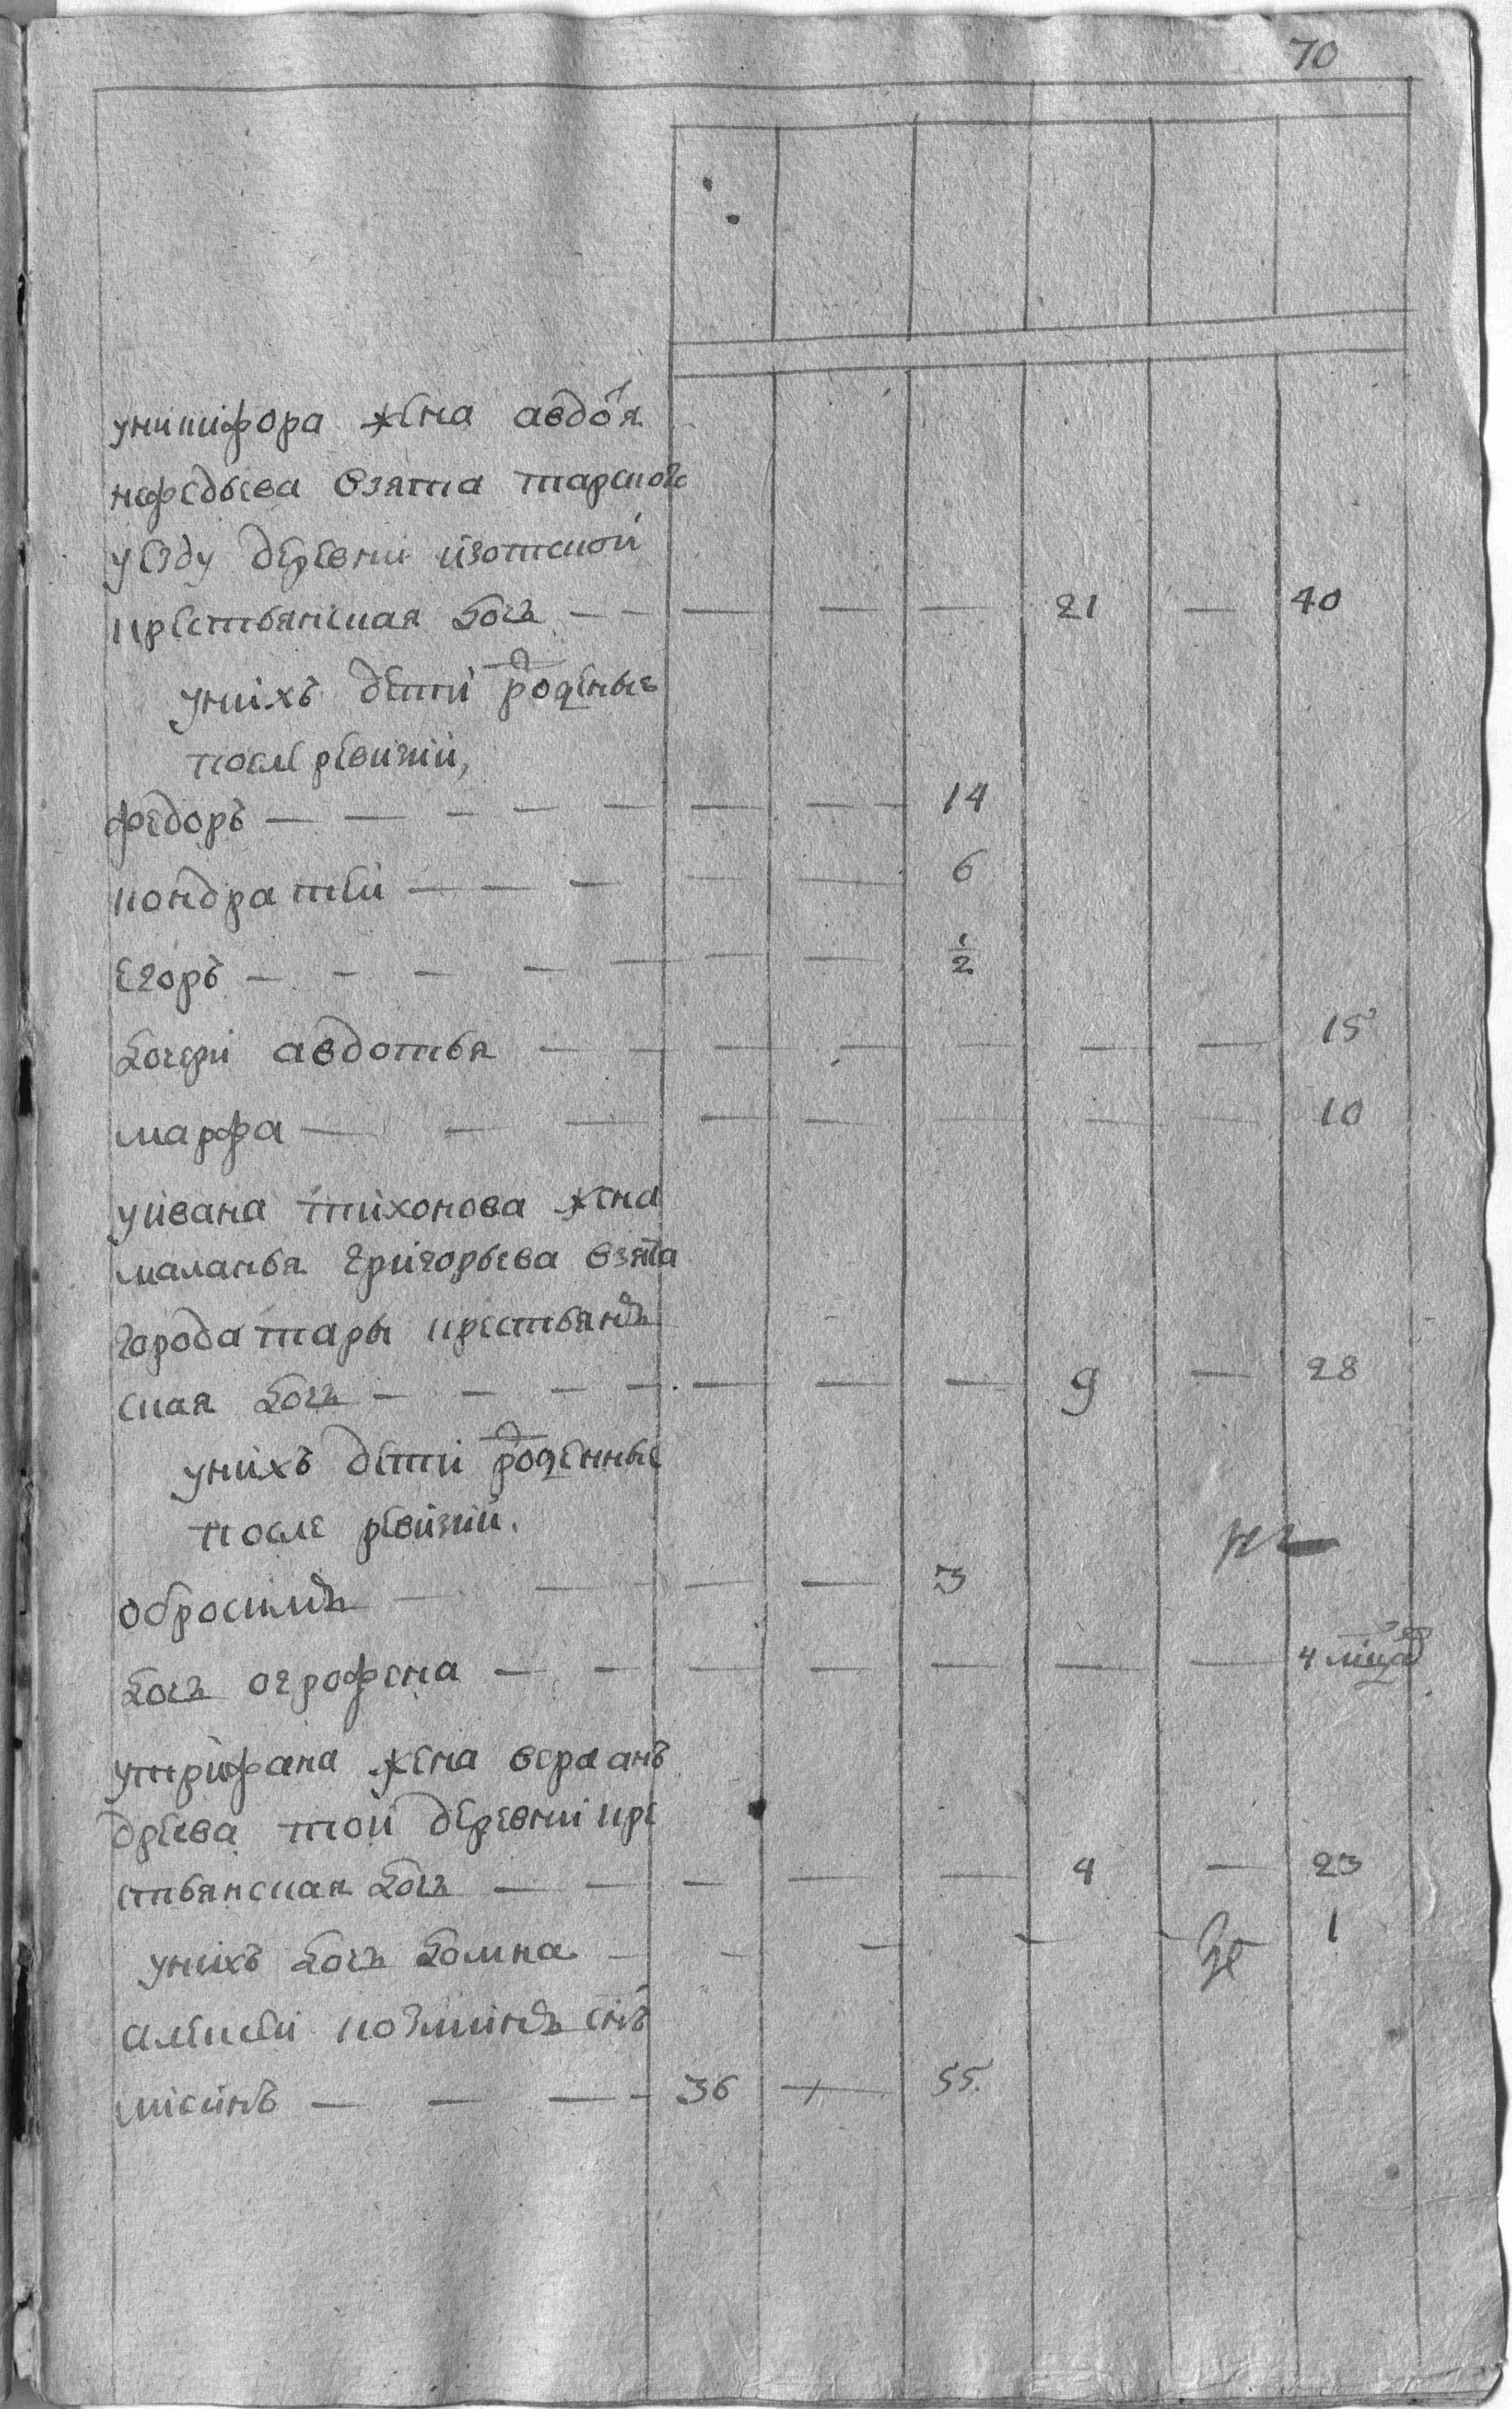 70
унинифора жена авдотя
нефедьева взята тарского
уезду деревни изотской
крестьянская дочь — — — — — 21 — 40
униіхъ дети рожденые
после ревизии,
федоръ — — — — — — — 14
кондратей — — — — — 6
егоръ — — — — — — — 1/2
дочери авдотья — — — — — — — 15
марфа — — — — — — — — 10
уивана тихонова жена
маланья григорьева взята
города тары крестьянъ
ская дочь — — — — — — — 9 — 28
унихъ дети рожденные
после ревизии.
обросимъ — — — — 3
дочь огрофена — — — — — — — 4 мцад
утрифана жена вера анъ
дреева той деревни кре
стьянская дочь — — — — — 4 — 23
унихъ дочь домна — — — — — 1
алексей козминъ снъ
мисинъ — — — — 36 — 55.